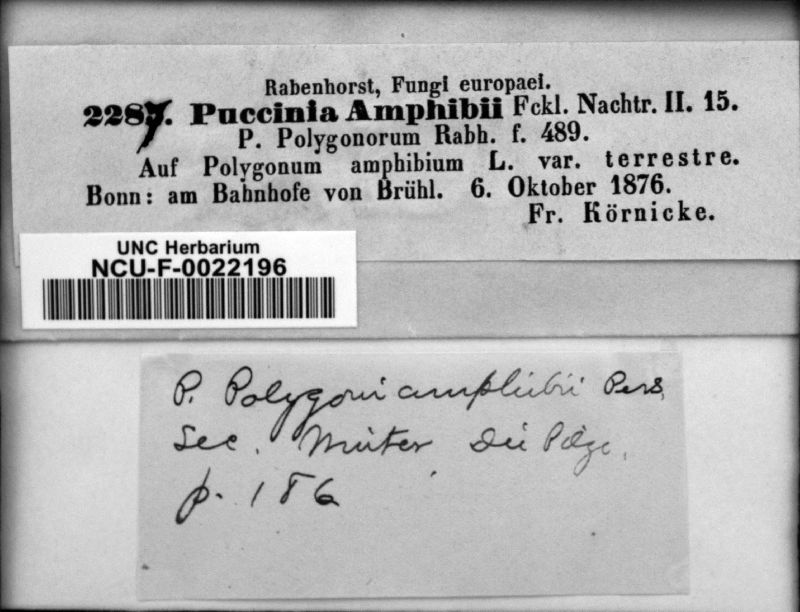 Rabenhorst, Fungi europaei.
2287. Puccinia Amphibii Fckl. Nachtr. II. 15.
P. Polygonorum Rabh. f. 489.
Auf Polygonum amphibium L. var. terrestre.
Bonn: am Bahnhofe von Brühl. 6. Oktober 1876.
Fr. Körnicke.
UNC Herbarium
NCU-F-0022196
P. Polygoni amphibii Pers.
Sec. Die
p. 186